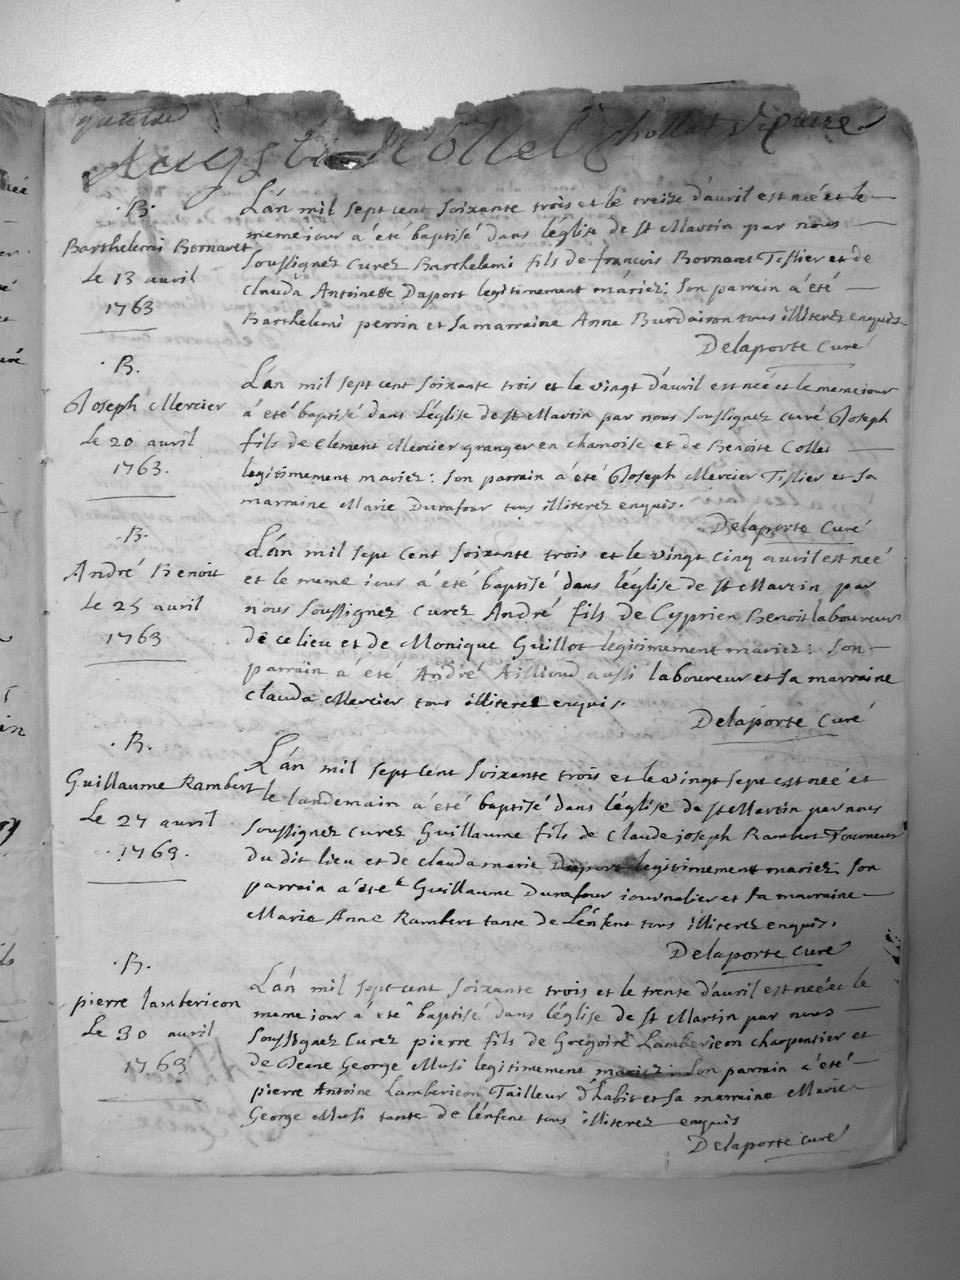 Augsti Kollet chollat Vicaire
.B.
Barthelemi Bornaret
Le 13 avril
1763
L'án mil sept cent soixante trois et le treize d'avril est neé et le
meme iour a eté baptisé dans l'église de st Martin par nous
soussignez curez Barthelemi fils de françois Bornaret Tissier et de
Clauda Antoinette Daport legitimement mariez: son parrain à été
Barthelemi perrin et sa marraine Anne Burdairon tous illiterez enquis.
Delaporte Curé
.B.
Joseph Mercier
Le 20 avril
1763.
L'án mil sept cent soixante trois et le vingt d'avril est neé et le meme iour
à été baptisé dans L'église de st Martin par nous soussignez curé Joseph
fils de Clement Mercier granger en chamoise et de Benoite Collet
legitimement mariez: son parrain à été Joseph Mercier Tissier et sa
marraine Marie Durafour tous illiterez enquis.
Delaporte Curé
.B.
André Benoit
Le 25 avril
1763
L'án mil sept cent soixante trois et le vingt cinq avril est neé
et le meme iour à été baptisé dans l'église de st Martin par
nous soussignez curez André fils de Cyprien Benoit laboureur
de ce lieu et de Monique Guillot legitimement mariez: son
parrain à été André Aillioud aussi laboureur et sa marraine
Clauda Mercier tous illiterez enquis.
Delaporte Curé
.B.
Guillaume Rambert
Le 27 avril
.1763.
L'án mil sept cent soixante trois et le vingt sept est neé et
le landemain à été baptisé dans l'église de st Martin par nous
soussignez curez Guillaume fils de Claude joseph Rambert Tourneur
du dit lieu et de clauda marie Daport legitimement mariez: son
parrain à été Guillaume Durafour iournalier et sa marraine
Marie Anne Rambert tante de L'énfent tous illiterez enquis.
Delaporte curé
.B.
pierre lambericon
Le 30 avril
1763
L'án mil sept cent soixante trois et le trente d'avril est neé et le
meme iour à été baptisé dans l'église de st Martin par nous
soussignez curez pierre fils de Gregoire Lambericon charpentier et
de Jeane George Musi legitimement mariez: son parrain à été
pierre Antoine Lambericon Tailleur d'habit et sa marraine Marie
George Musi tante de l'énfent tous illiterez enquis
Delaporte curé